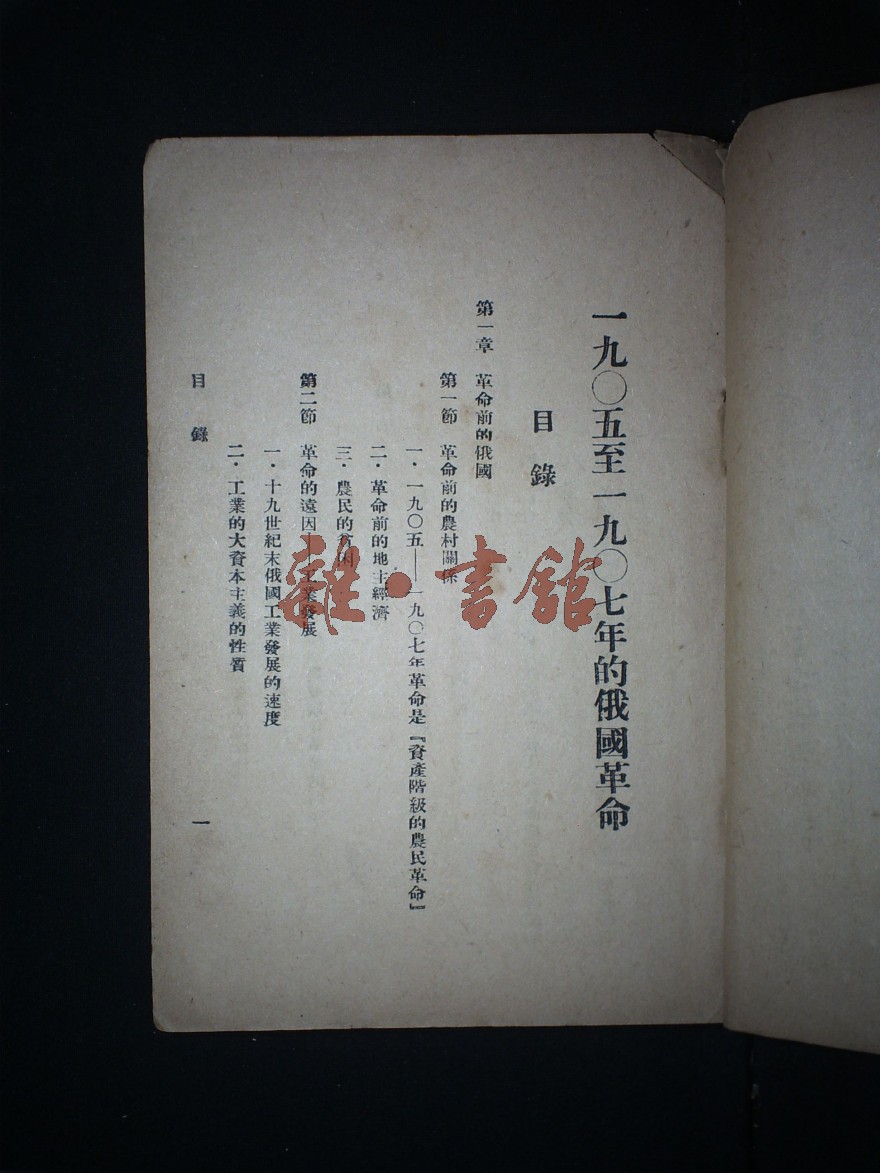 一九〇五至一九〇七年的俄國革命
目錄
第一章 革命前的俄國
第一節 革命前的農村關係
一．一九〇五——一九〇七年革命是『資產階級的農民革命』
二．革命前的地主經濟
三．農民的貧困
第二節 革命的遠因——工業發展
一．十九世紀末俄國工業發展的速度
二．工業的大資本主義的性質
目錄
一
雜·書館